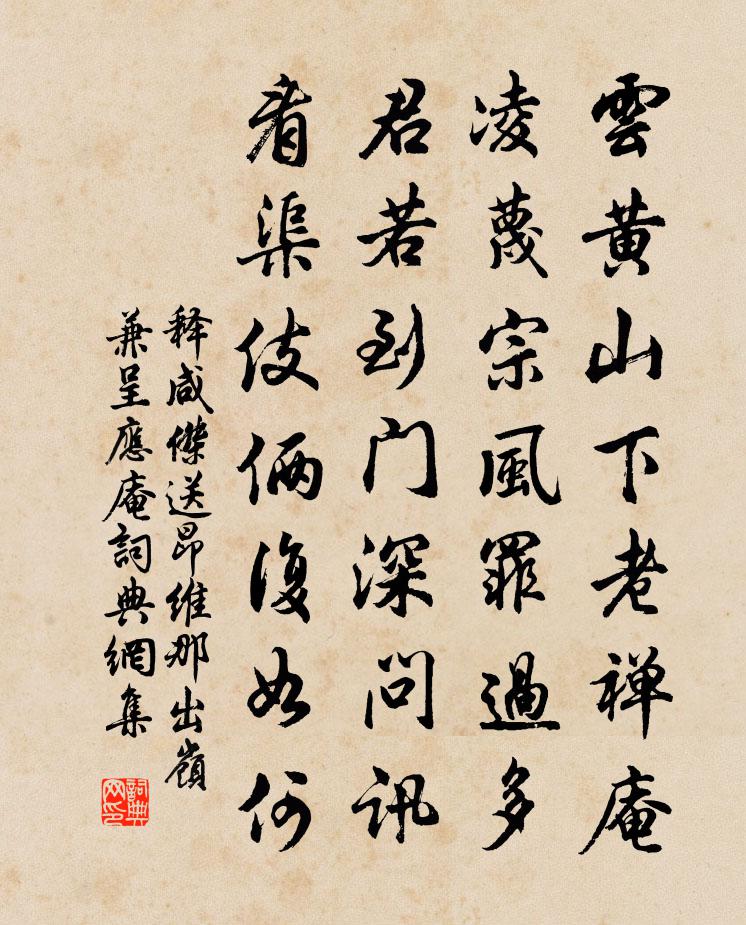 雲黃山下老禅庵
凌蔑宗風罪過多
君若到门深问訊
看渠伎倆復如何
释咸傑送昂维那出嶺
兼呈應庵詞典網集
詞典网印